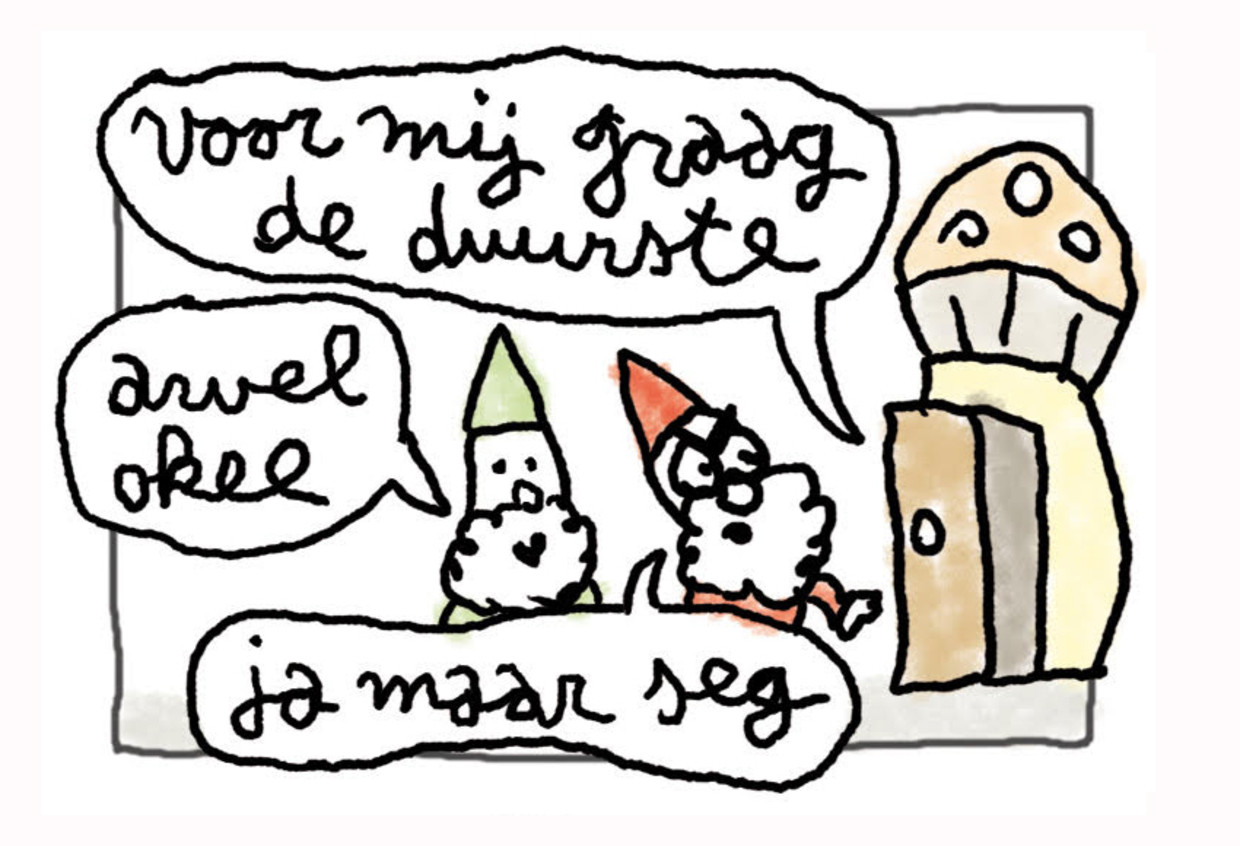 voor mij graag
de duurste
arvel
okee
ja maar seg